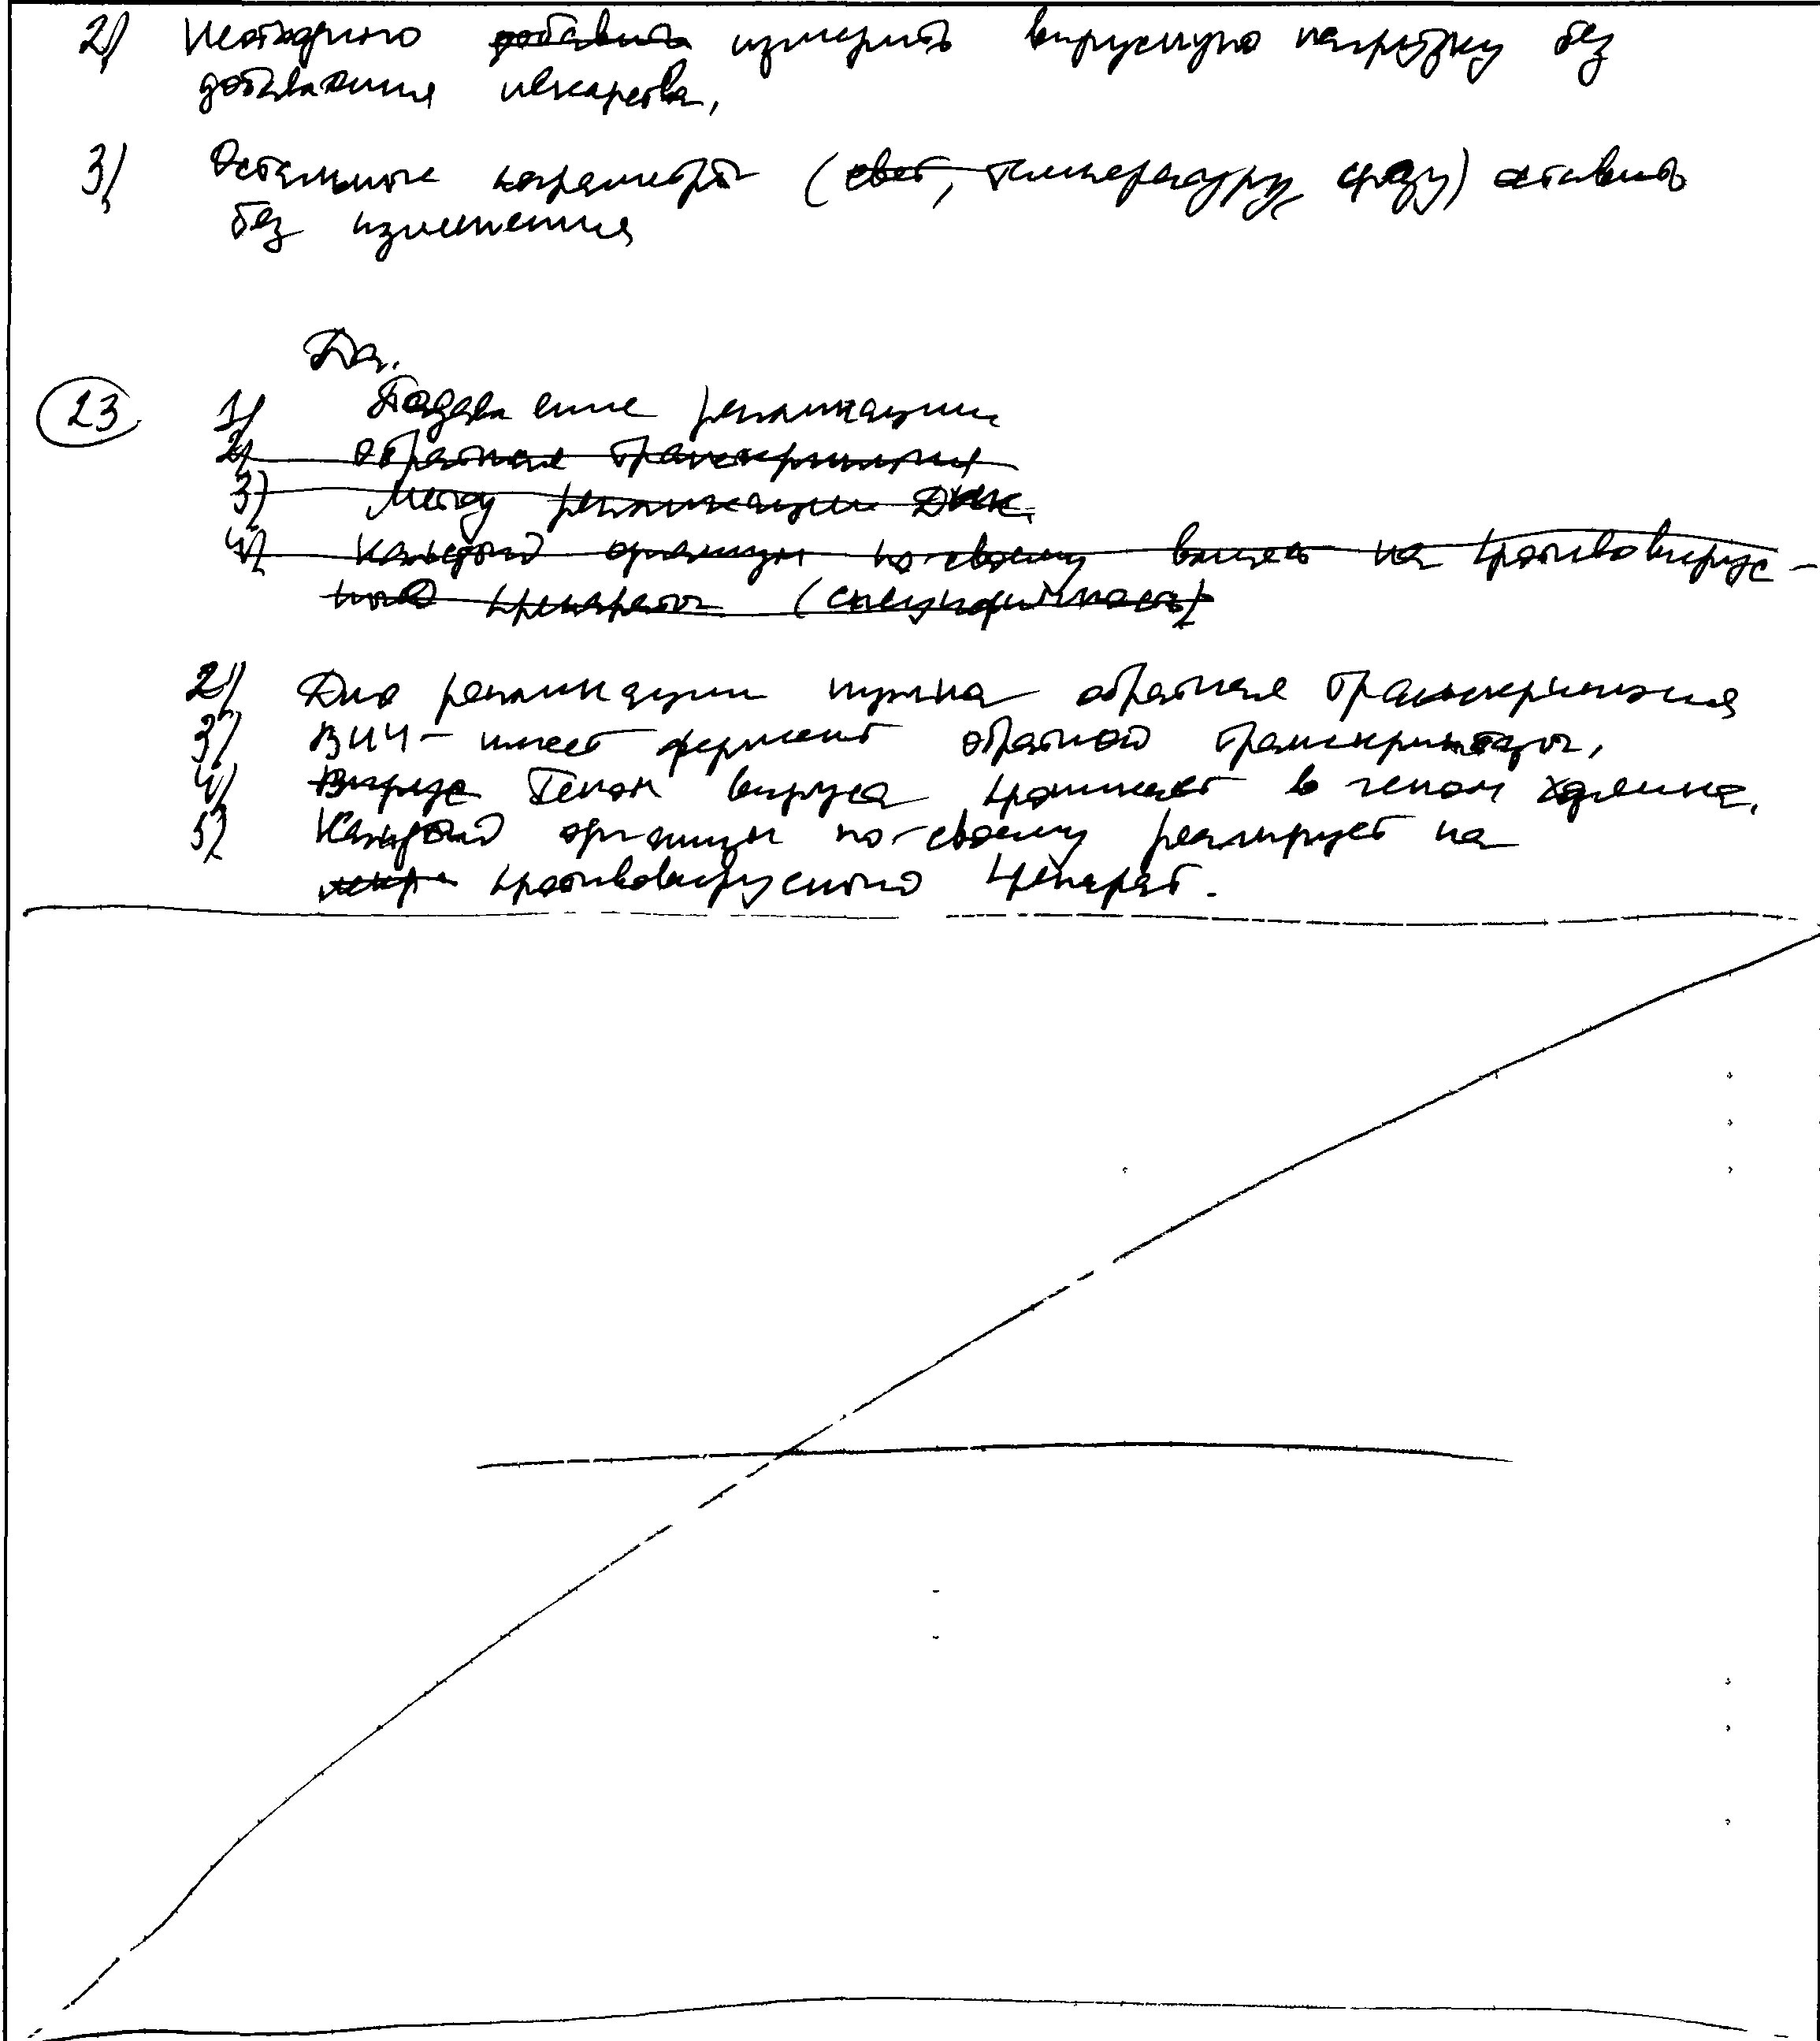 2) Необходимо добавить измерить вирусную нагрузку без
добавления лекарства.
3) Остальные параметры (свет, температуру, среду) оставить
без изменения
Да.
23 1) Подавление репликации
2) Обратная транскрипция
3) Между репликации ДНК.
4) Каждый организм по-своему влияет на противовирус-
ные препараты (специфичность)
2) Для репликации нужна обратная транскрипция
3) ВИЧ - имеет фермент обратной транскриптазы.
4) Вирус Геном вируса проникает в геном хозяина.
5) Каждый организм по-своему реагирует на
противовирусный препарат.